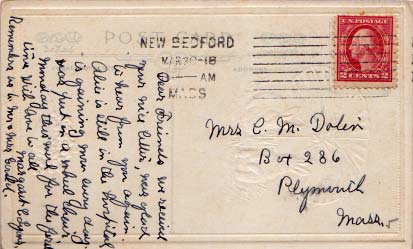 POST CARD
NEW BEDFORD
MAR 30-18
AM
MASS
U.S. POSTAGE
2 CENTS 2
Dear Friends we received
your nice letter, was glad
to hear from you again
Alice is still in the hospital
is gaining more every day.
was put in a wheel chair
Monday this week for the first
time with love to all
Margaret
Remember us to Mr & Mrs
Mrs C. M. Dolen
Box 286
Plymouth
Mass.